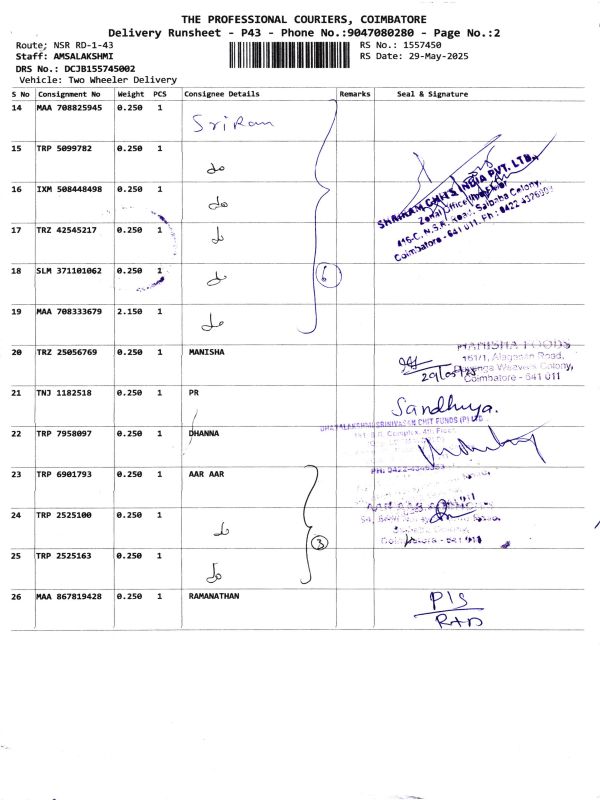 THE PROFESSIONAL COURIERS, COIMBATORE
Delivery Runsheet - P43 - Phone No.:9047080280 - Page No.:2
Route; NSR RD-1-43 RS No.: 1557450
Staff: AMSALAKSHMI RS Date: 29-May-2025
DRS No.: DCJB155745002
Vehicle: Two Wheeler Delivery
S No Consignment No Weight PCS Consignee Details Remarks Seal & Signature
14 MAA 708825945 0.250 1 SriRam
15 TRP 5099782 0.250 1 do
16 IXM 508448498 0.250 1 do
SHRIRAM CHITS INDIA PVT. LTD.,
Zonal Office
416-C, N.S.R. Road, Saibaba Colony,
Coimbatore - 641 011. Ph : 0422
17 TRZ 42545217 0.250 1 do
18 SLM 371101062 0.250 1 do 6
19 MAA 708333679 2.150 1 do
20 TRZ 25056769 0.250 1 MANISHA
MANISHA FOODS
161/1, Alagesan Road,
Weavers Colony,
Coimbatore - 641 011
29/05/25
21 TNJ 1182518 0.250 1 PR Sandhiya.
SRINIVASAN CHIT FUNDS (P) LTD
22 TRP 7958097 0.250 1 DHANNA
PH: 0422-
23 TRP 6901793 0.250 1 AAR AAR
24 TRP 2525100 0.250 1 do 3
25 TRP 2525163 0.250 1 do
26 MAA 867819428 0.250 1 RAMANATHAN P/S
R+D